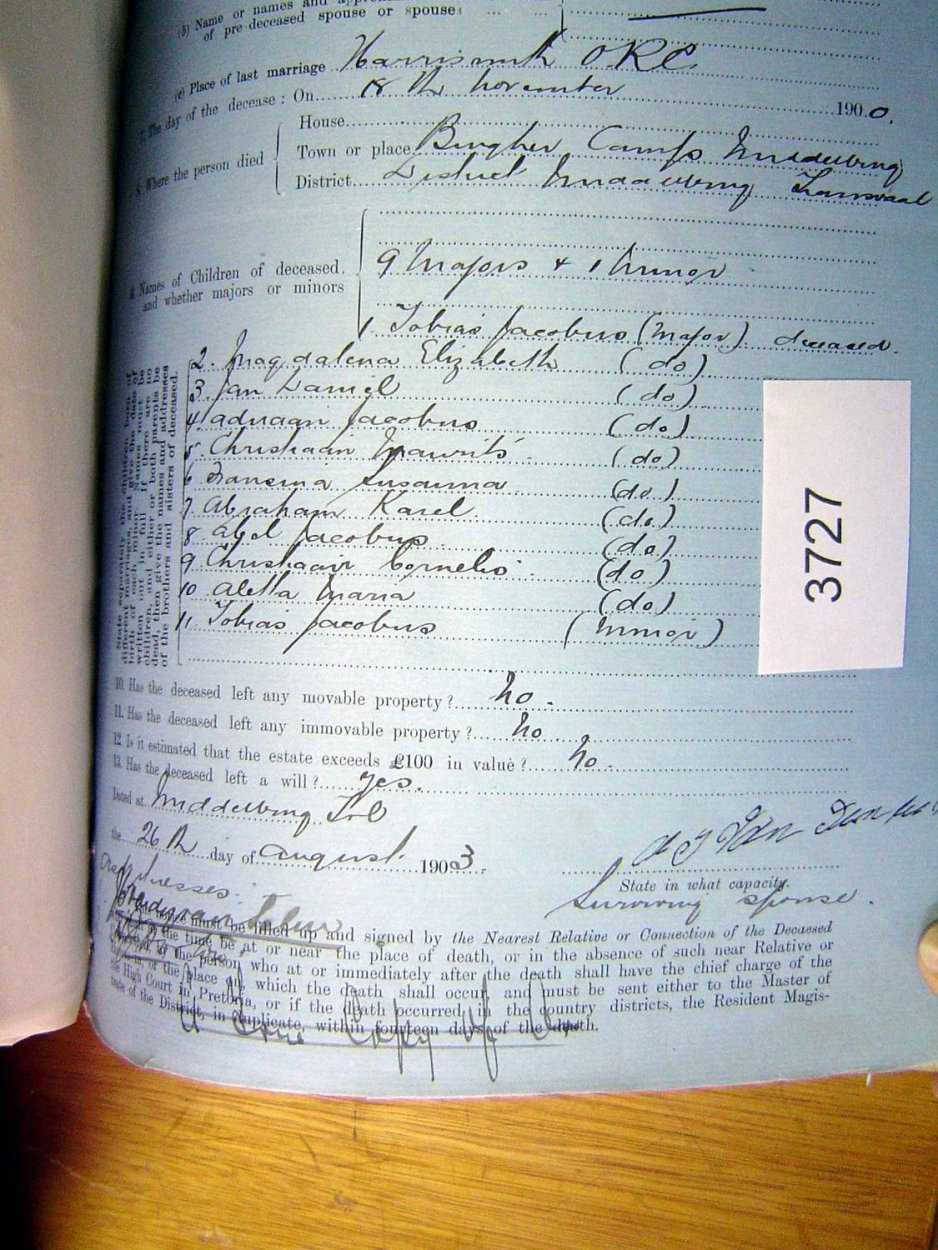 (b) Name or names and
of pre-deceased spouse or spouses
(c) Place of last marriage Harrismith ORC
7. The day of the decease: On 18th November 1900.
8. Where the person died
House
Town or place Burgher Camp Middelburg
District District Middelburg Transvaal
9. Names of Children of deceased,
and whether majors or minors
9 Majors & 1 Minor
1. Tobias Jacobus (Major) deceased.
2. Magdalena Elizabeth (do)
3 Jan Daniel (do)
4 Adriaan Jacobus (do)
5 Christiaan Maurits (do)
6 Susanna (do)
7 Abraham Karel (do)
8 Abel Jacobus (do)
9 Christiaan Cornelis (do)
10 Aletta Maria (do)
11 Tobias Jacobus (Minor)
State separately the children born of
different marriages, and give the date of
birth of each minor. Names must be
written out in full. If there are no
children, and either or both parents be
dead, then give the names and addresses
of the brothers and sisters of deceased.
3727
10. Has the deceased left any movable property? No.
11. Has the deceased left any immovable property? No
12. Is it estimated that the estate exceeds £100 in value? No.
13. Has the deceased left a will? yes.
Dated at Middelburg
the 26th day of August 1903.
State in what capacity.
Surviving spouse.
As Witnesses
must be filled up and signed by the Nearest Relative or Connection of the Deceased
the time be at or near the place of death, or in the absence of such near Relative or
the person who at or immediately after the death shall have the chief charge of the
or the place in which the death shall occur, and must be sent either to the Master of
the High Court in Pretoria, or if the death occurred in the country districts, the Resident Magis-
trate of the District, in duplicate, within fourteen days of the death.
A True Copy